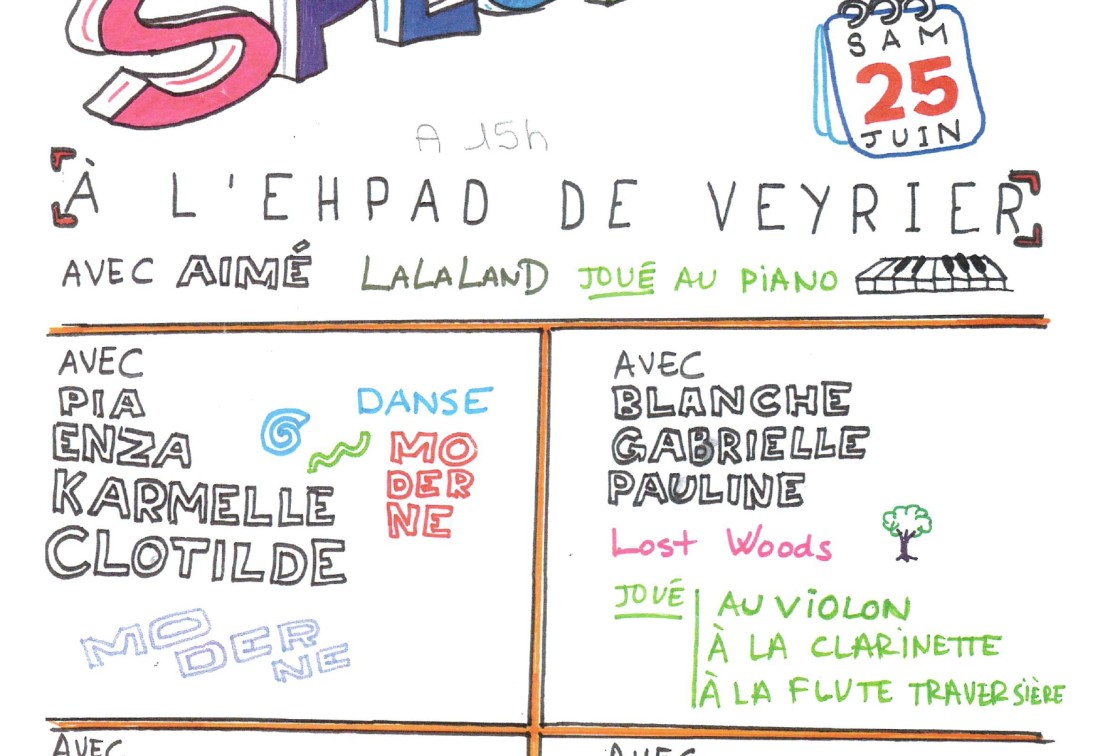 SAM
25
JUIN
A 15h
À L'EHPAD DE VEYRIER
AVEC AIMÉ LALALAND JOUÉ AU PIANO
AVEC
PIA
ENZA
KARMELLE
CLOTILDE
DANSE
MO
DER
NE
MO
DER
NE
AVEC
BLANCHE
GABRIELLE
PAULINE
Lost Woods
JOUÉ
AU VIOLON
À LA CLARINETTE
À LA FLUTE TRAVERSIÈRE
AVEC
AVEC